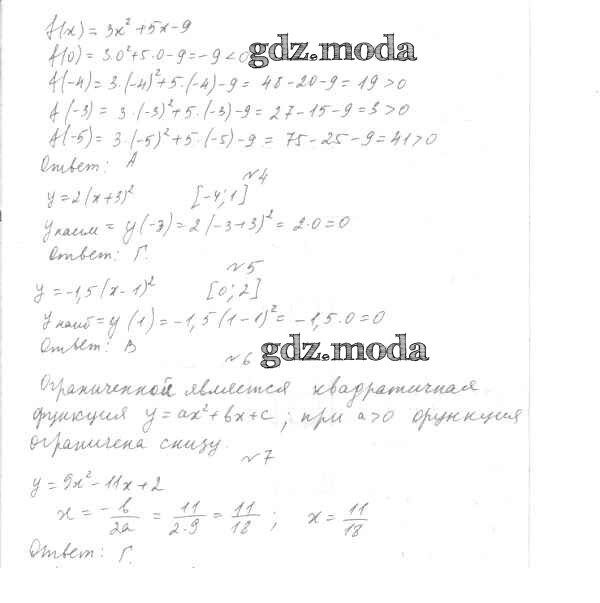 f(x) = 3x² + 5x - 9
f(0) = 3·0² + 5·0 - 9 = -9 < 0
gdz.moda
f(-4) = 3·(-4)² + 5·(-4) - 9 = 48 - 20 - 9 = 19 > 0
f(-3) = 3·(-3)² + 5·(-3) - 9 = 27 - 15 - 9 = 3 > 0
f(-5) = 3·(-5)² + 5·(-5) - 9 = 75 - 25 - 9 = 41 > 0
Ответ: А
№4
y = 2(x+3)² [-4; 1]
y наим = y(-3) = 2(-3+3)² = 2·0 = 0
Ответ: Г.
№5
y = -1,5(x-1)² [0; 2]
y наиб = y(1) = -1,5(1-1)² = -1,5·0 = 0
Ответ: В
№6
gdz.moda
Ограниченной является квадратичная
функция y = ax² + bx + c; при a > 0 функция
ограничена снизу.
№7
y = 9x² - 11x + 2
x = -b/2a = 11/2·9 = 11/18; x = 11/18
Ответ: Г.